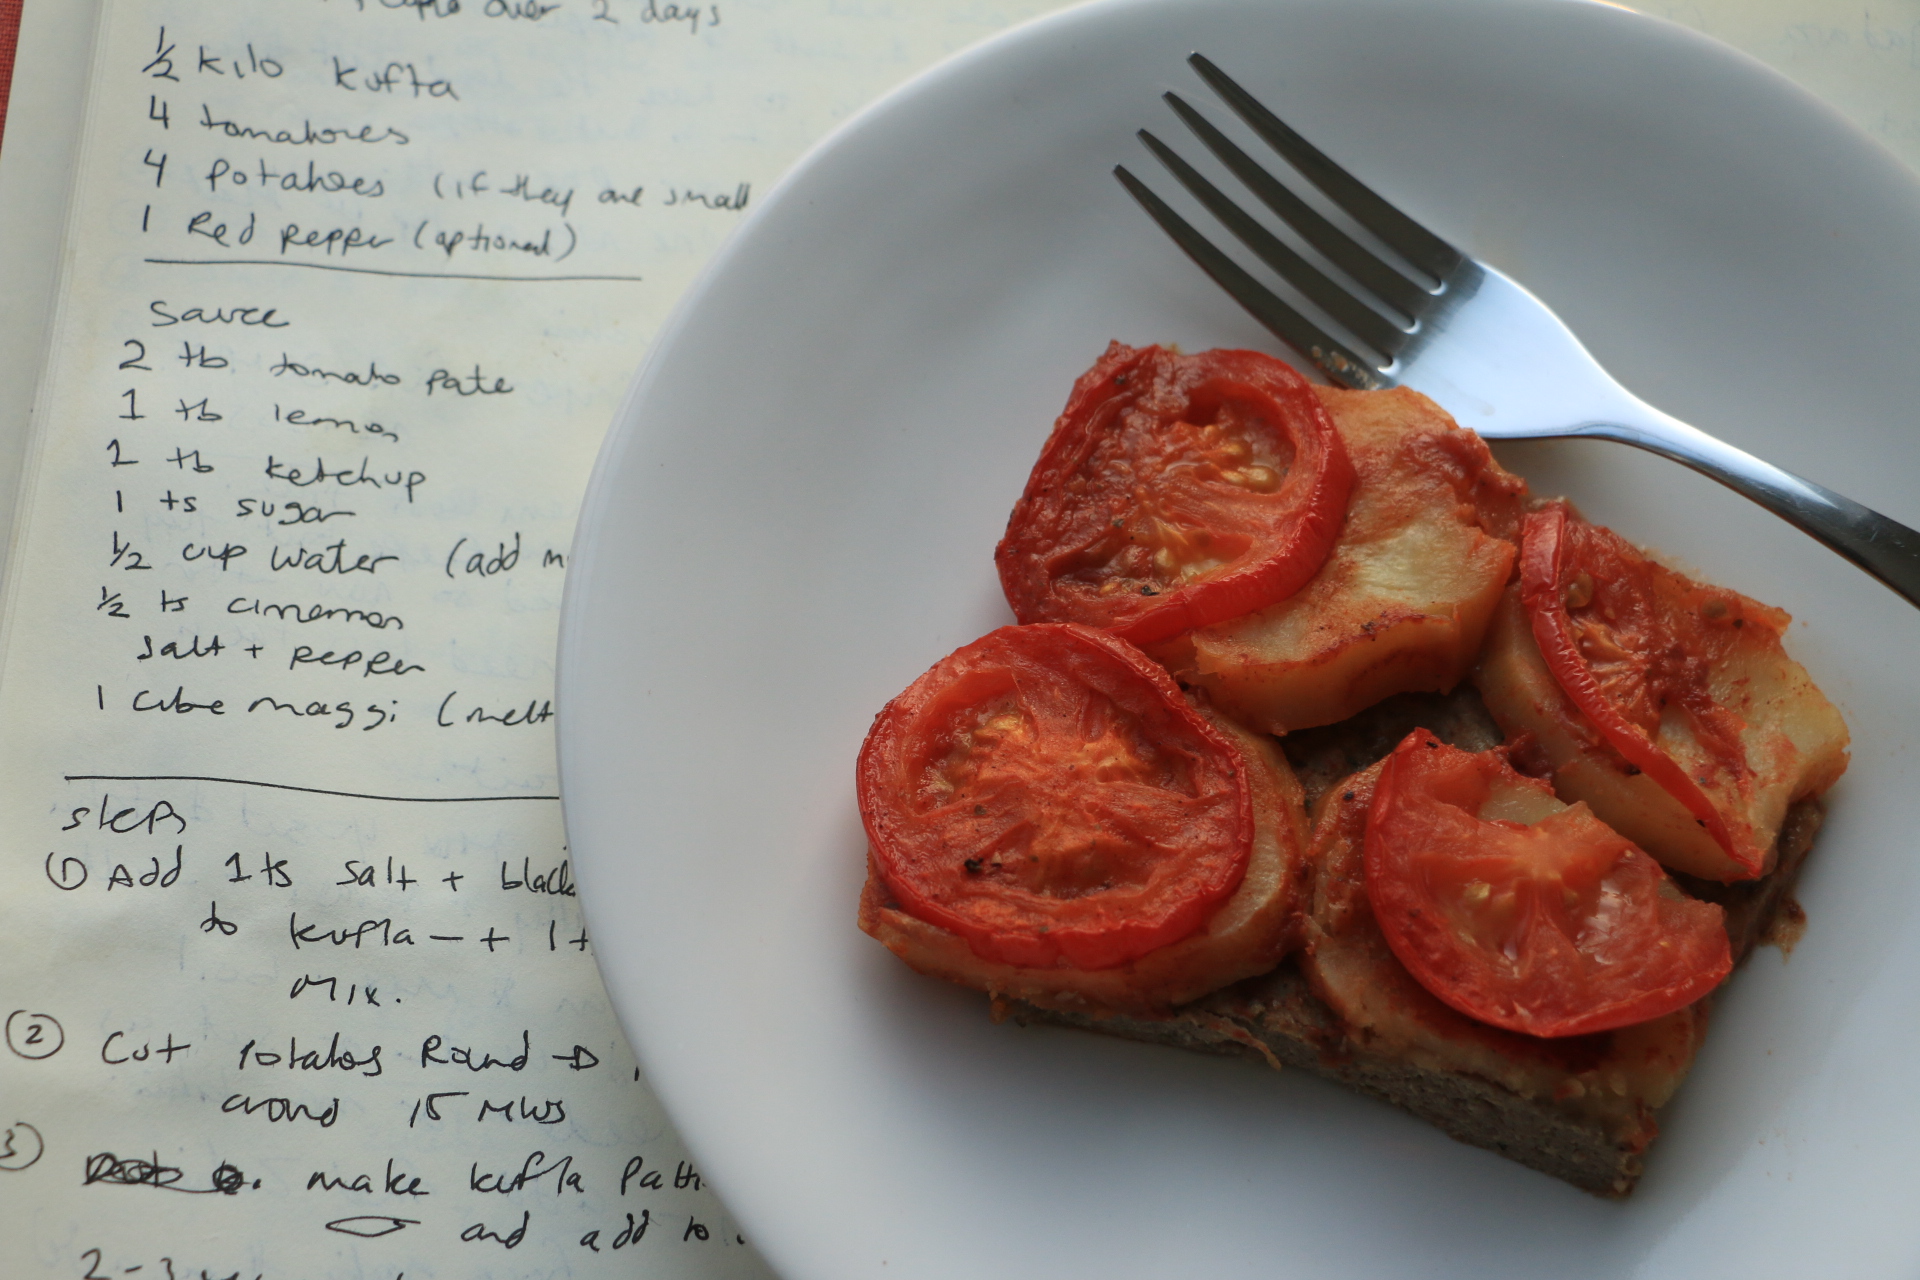 over 2 days
1/2 kilo kufta
4 tomatoes
4 potatoes (if they are small
1 Red pepper (optional)
sauce
2 tb tomato pate
1 tb lemon
1 tb ketchup
1 ts sugar
1/2 cup water (add m
1/2 ts cinnamon
salt + pepper
1 cube maggi (melt
steps
① Add 1 ts salt + black
to kufta — + 1 t
Mix.
② Cut potatoes Round →
around 15
③ make kufta patti
and add to
2-3